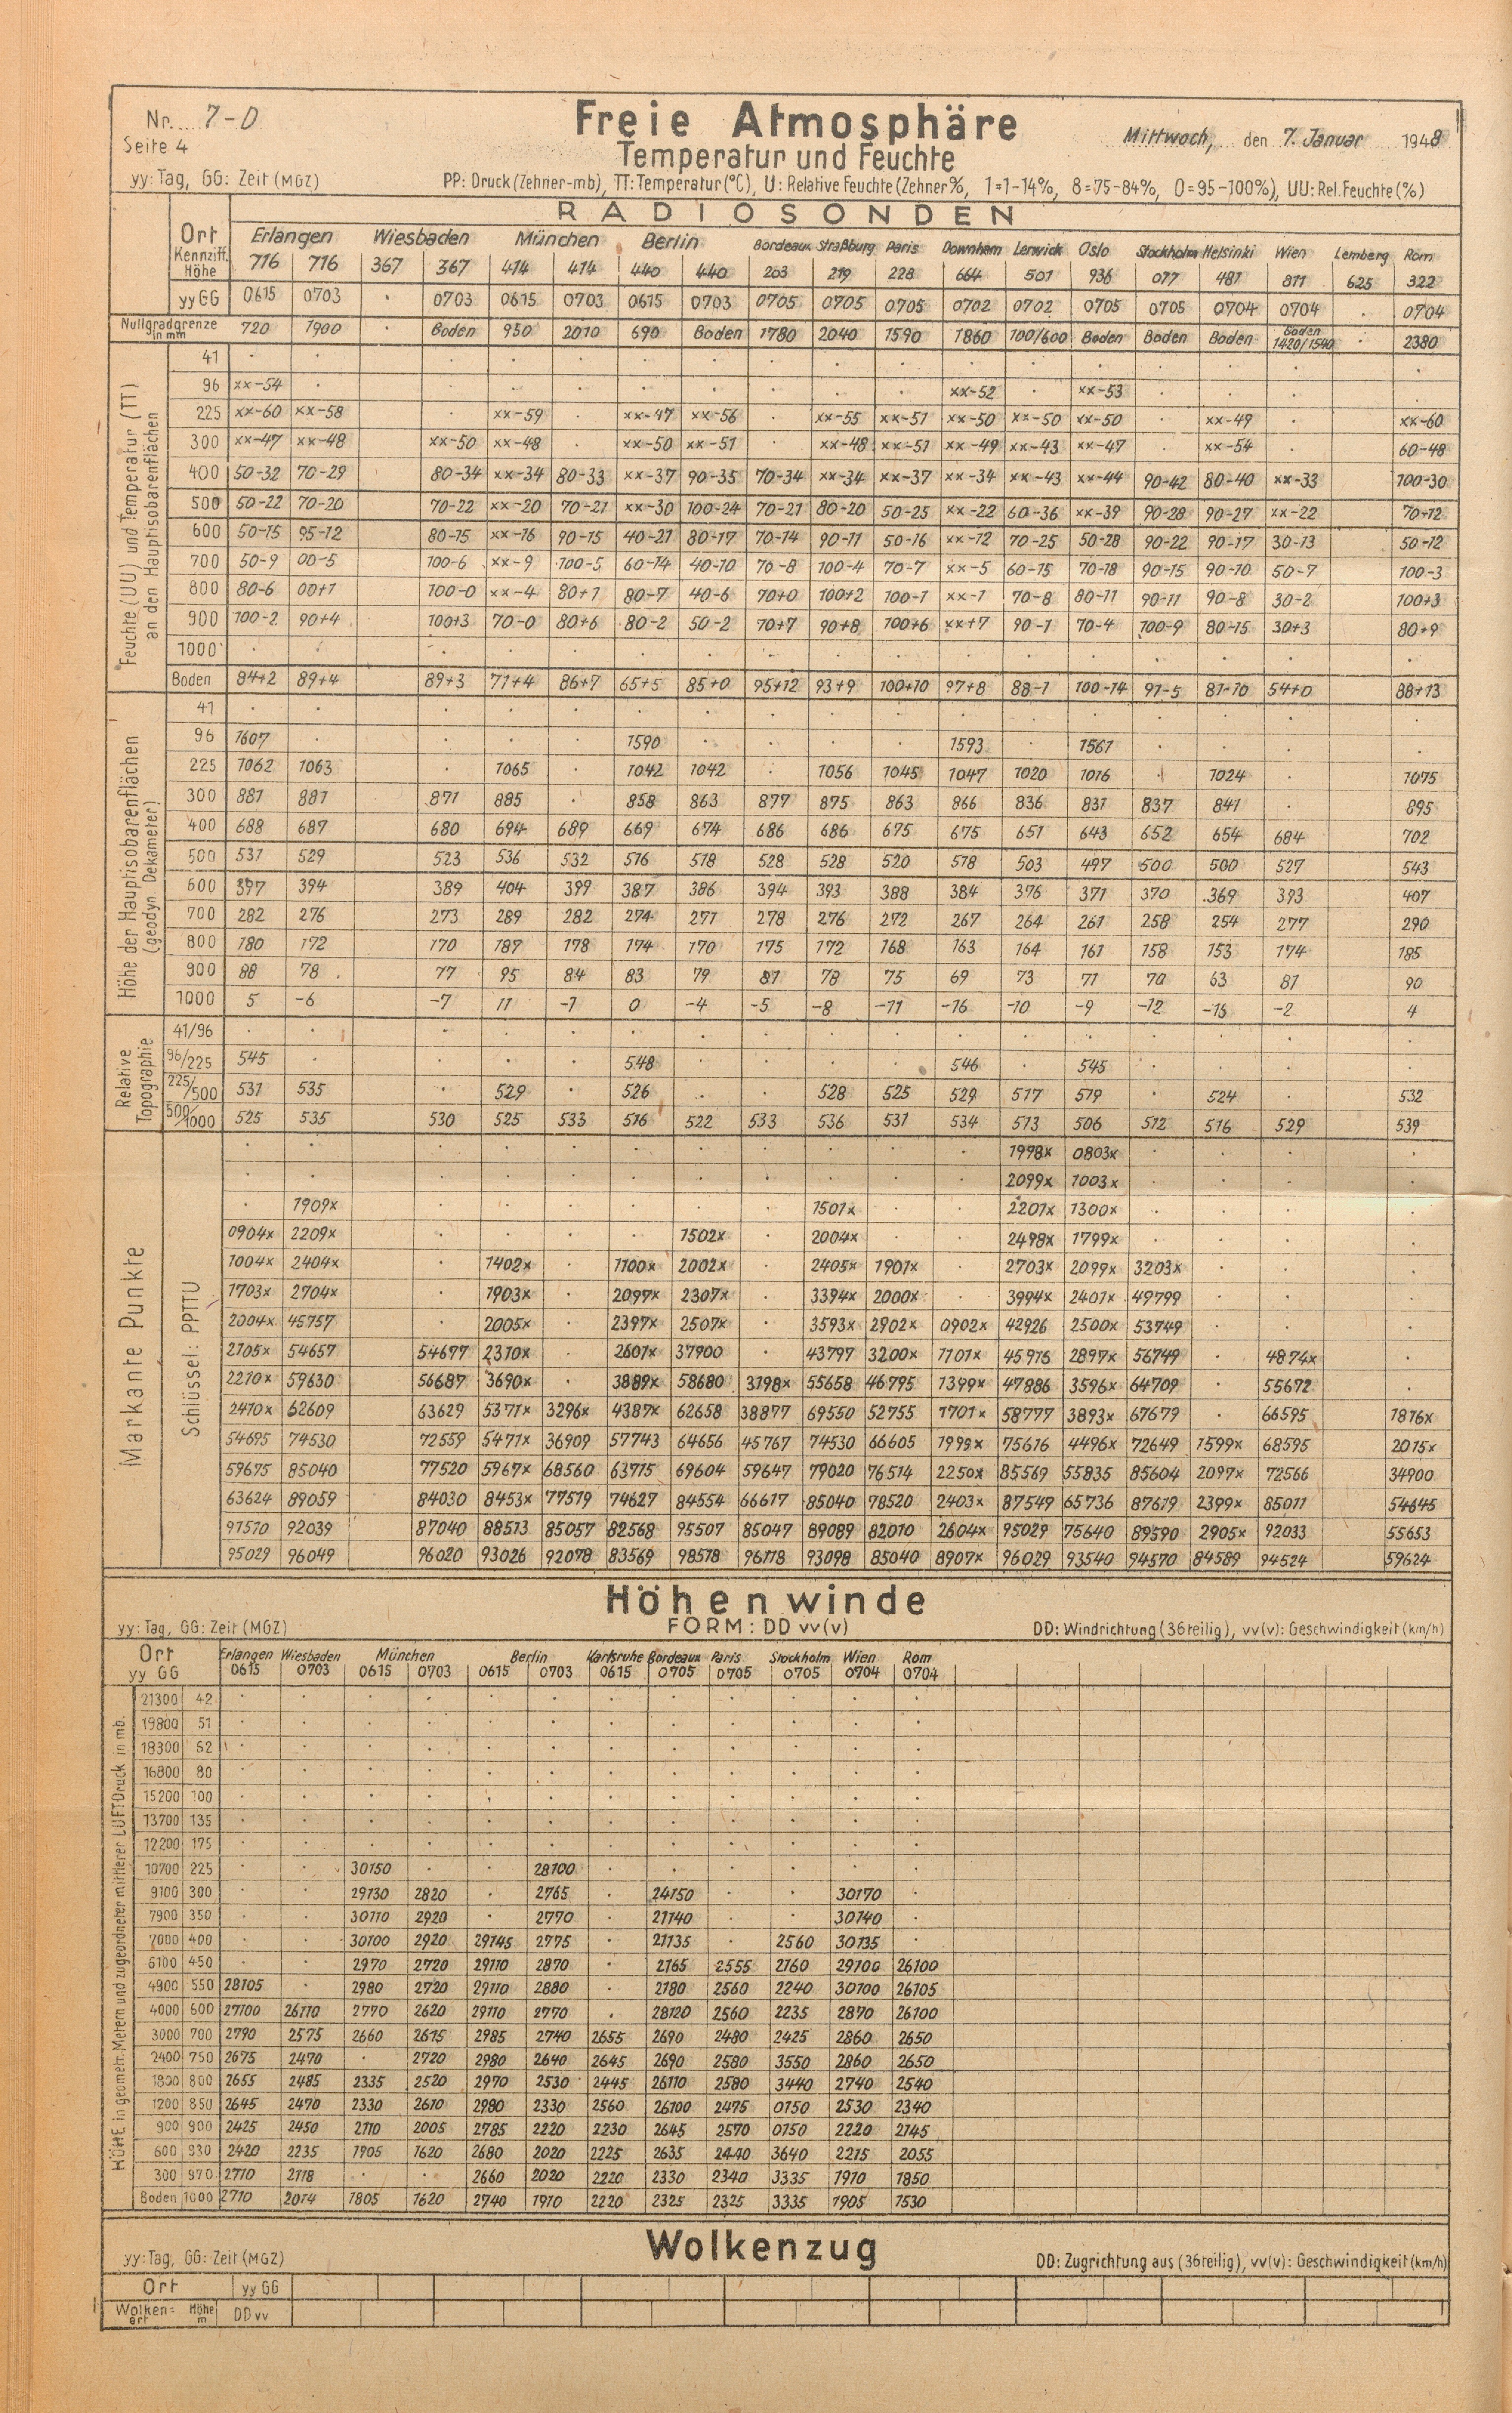 Nr. 7-D
Seite 4
yy: Tag, GG: Zeit (MGZ)
Freie Atmosphäre
Temperatur und Feuchte
Mittwoch, den 7. Januar 1948
PP: Druck (Zehner-mb), TT: Temperatur (°C), U: Relative Feuchte (Zehner %, 1=1-14%, 8=75-84%, 0=95-100%), UU: Rel. Feuchte (%)
RADIOSONDEN
Ort Erlangen Wiesbaden München Berlin Bordeaux Straßburg Paris Downham Lerwick Oslo Stockholm Helsinki Wien Lemberg Rom
Kennziff. Höhe 716 716 367 367 414 414 440 440 203 219 228 664 501 936 077 481 811 625 322
yy GG 0615 0703 . 0703 0615 0703 0615 0703 0705 0705 0705 0702 0702 0705 0705 0704 0704 . 0704
Nullgradgrenze in mm 720 1900 . Boden 950 2010 690 Boden 1780 2040 1590 1860 100/600 Boden Boden Boden Boden 1420/1540 . 2380
Feuchte (UU) und Temperatur (TT) an den Hauptisobarenflächen
41
96 xx-54 . xx-52 . xx-53
225 xx-60 xx-58 . xx-59 xx-47 xx-56 . xx-55 xx-51 xx-50 xx-50 xx-50 . xx-49 . xx-60
300 xx-47 xx-48 xx-50 xx-48 . xx-50 xx-51 . xx-48 xx-51 xx-49 xx-43 xx-47 . xx-54 . 60-48
400 50-32 70-29 80-34 xx-34 80-33 xx-37 90-35 70-34 xx-34 xx-37 xx-34 xx-43 xx-44 90-42 80-40 xx-33 100-30
500 50-22 70-20 70-22 xx-20 70-21 xx-30 100-24 70-21 80-20 50-25 xx-22 60-36 xx-39 90-28 90-27 xx-22 70-12
600 50-15 95-12 80-15 xx-16 90-15 40-21 80-17 70-14 90-11 50-16 xx-12 70-25 50-28 90-22 90-17 30-13 50-12
700 50-9 00-5 100-6 xx-9 100-5 60-14 40-10 70-8 100-4 70-7 xx-5 60-15 70-18 90-15 90-10 50-7 100-3
800 80-6 00+1 100-0 xx-4 80+1 80-7 40-6 70+0 100+2 100-1 xx-1 70-8 80-11 90-11 90-8 30-2 100+3
900 100-2 90+4 100+3 70-0 80+6 80-2 50-2 70+7 90+8 100+6 xx+7 90-1 70-4 100-9 80-15 30+3 80+9
1000
Boden 84+2 89+4 89+3 71+4 86+7 65+5 85+0 95+12 93+9 100+10 97+8 88-1 100-14 91-5 81-10 54+0 88+13
Höhe der Hauptisobarenflächen (geodyn. Dekameter)
41
96 1607 . 1590 . 1593 . 1561
225 1062 1063 . 1065 1042 1042 . 1056 1045 1047 1020 1016 . 1024 . 1075
300 881 881 871 885 . 858 863 877 875 863 866 836 831 837 841 . 895
400 688 687 680 694 689 669 674 686 686 675 675 651 643 652 654 684 702
500 531 529 523 536 532 516 518 528 528 520 518 503 497 500 500 527 543
600 397 394 389 404 399 387 386 394 393 388 384 376 371 370 369 393 407
700 282 276 273 289 282 274 271 278 276 272 267 264 261 258 254 277 290
800 180 172 170 187 178 174 170 175 172 168 163 164 161 158 153 174 185
900 88 78 77 95 84 83 79 81 78 75 69 73 71 70 63 81 90
1000 5 -6 -7 11 -1 0 -4 -5 -8 -11 -16 -10 -9 -12 -15 -2 4
Relative Topographie
41/96
96/225 545 . 548 . 546 . 545
225/500 531 535 . 529 . 526 . 528 525 529 517 519 . 524 . 532
500/1000 525 535 530 525 533 516 522 533 536 531 534 513 506 512 516 529 539
Markante Punkte
Schlüssel: PPTTU
1998x 0803x
2099x 1003x
. 1909x 1501x . 2201x 1300x
0904x 2209x . 1502x . 2004x . 2498x 1799x
1004x 2404x . 1402x . 1100x 2002x . 2405x 1901x . 2703x 2099x 3203x
1703x 2704x . 1903x . 2097x 2307x . 3394x 2000x . 3994x 2401x 49799
2004x 45757 . 2005x . 2397x 2507x . 3593x 2902x 0902x 42926 2500x 53749
2105x 54657 54677 2310x . 2601x 37900 . 43797 3200x 1101x 45916 2897x 56749 . 4874x
2210x 59630 56687 3690x . 3889x 58680 3198x 55658 46795 1399x 47886 3596x 64709 . 55672
2410x 62609 63629 5371x 3296x 4387x 62658 38877 69550 52755 1701x 58777 3893x 67679 . 66595 1816x
54695 74530 72559 5471x 36909 57743 64656 45767 74530 66605 1999x 75616 4496x 72649 1599x 68595 2015x
59675 85040 77520 5967x 68560 63715 69604 59647 79020 76514 2250x 85569 55835 85604 2097x 72566 34900
63624 89059 84030 8453x 77519 74627 84554 66617 85040 78520 2403x 87549 65736 87619 2399x 85011 54645
91510 92039 87040 88513 85057 82568 95507 85047 89089 82010 2604x 95029 75640 89590 2905x 92033 55653
95029 96049 96020 93026 92078 83569 98518 96118 93098 85040 8907x 96029 93540 94570 84589 94524 59624
Höhenwinde
yy: Tag, GG: Zeit (MGZ)
FORM: DD vv(v)
DD: Windrichtung (36teilig), vv(v): Geschwindigkeit (km/h)
Ort Erlangen Wiesbaden München Berlin Karlsruhe Bordeaux Paris Stockholm Wien Rom
yy GG 0615 0703 0615 0703 0615 0703 0615 0705 0705 0705 0704 0704
HÖHE in geometr. Metern und zugeordneter mittlerer LUFTDruck in mb.
21300 42
19800 51
18300 62
16800 80
15200 100
13700 135
12200 175
10700 225 . . 30150 . . 28100
9100 300 . . 29130 2820 . 2765 . 24150 . . 30170
7900 350 . . 30110 2920 . 2770 . 21140 . . 30140
7000 400 . . 30100 2920 29145 2775 . 21135 . 2560 30135
6100 450 . . 2970 2720 29110 2870 . 2165 2555 2160 29100 26100
4900 550 28105 . 2980 2720 29110 2880 . 2180 2560 2240 30100 26105
4000 600 27100 26110 2770 2620 29110 2770 . 28120 2560 2235 2870 26100
3000 700 2790 2575 2660 2615 2985 2740 2655 2690 2480 2425 2860 2650
2400 750 2675 2470 . 2720 2980 2640 2645 2690 2580 3550 2860 2650
1800 800 2655 2485 2335 2520 2970 2530 2445 26110 2580 3440 2740 2540
1200 850 2645 2470 2330 2610 2980 2330 2560 26100 2475 0150 2530 2340
900 900 2425 2450 2110 2005 2785 2220 2230 2645 2570 0150 2220 2145
600 930 2420 2235 1905 1620 2680 2020 2225 2635 2440 3640 2215 2055
300 970 2710 2118 . . 2660 2020 2220 2330 2340 3335 1910 1850
Boden 1000 2710 2014 1805 1620 2740 1910 2220 2325 2325 3335 1905 1530
Wolkenzug
yy: Tag, GG: Zeit (MGZ)
DD: Zugrichtung aus (36teilig), vv(v): Geschwindigkeit (km/h)
Ort yy GG
Wolken=art Höhe m DD vv